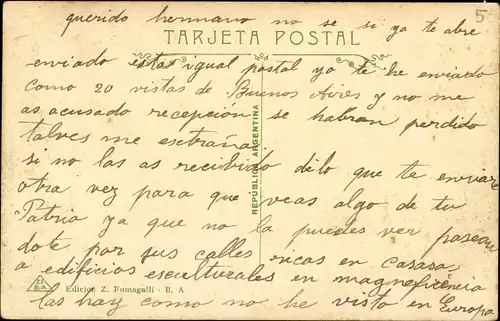 querido hermano no se si ya te abre
5
TARJETA POSTAL
enviado esta igual postal yo te he enviado
como 20 vistas de Buenos Aires y no me
as acusado recepción se habran perdido
talves me esctraña
si no las as recibido dilo que te enviare
otra vez para que veas algo de tu
Patria ya que no la puedes ver pasean
dote por sus calles ricas en casasa
a edificios esculturales en magnificencia
las hay como no he visto en Europa
REPÚBLICA ARGENTINA
Z.F.
B.A.
Editor Z. Fumagalli - B. A